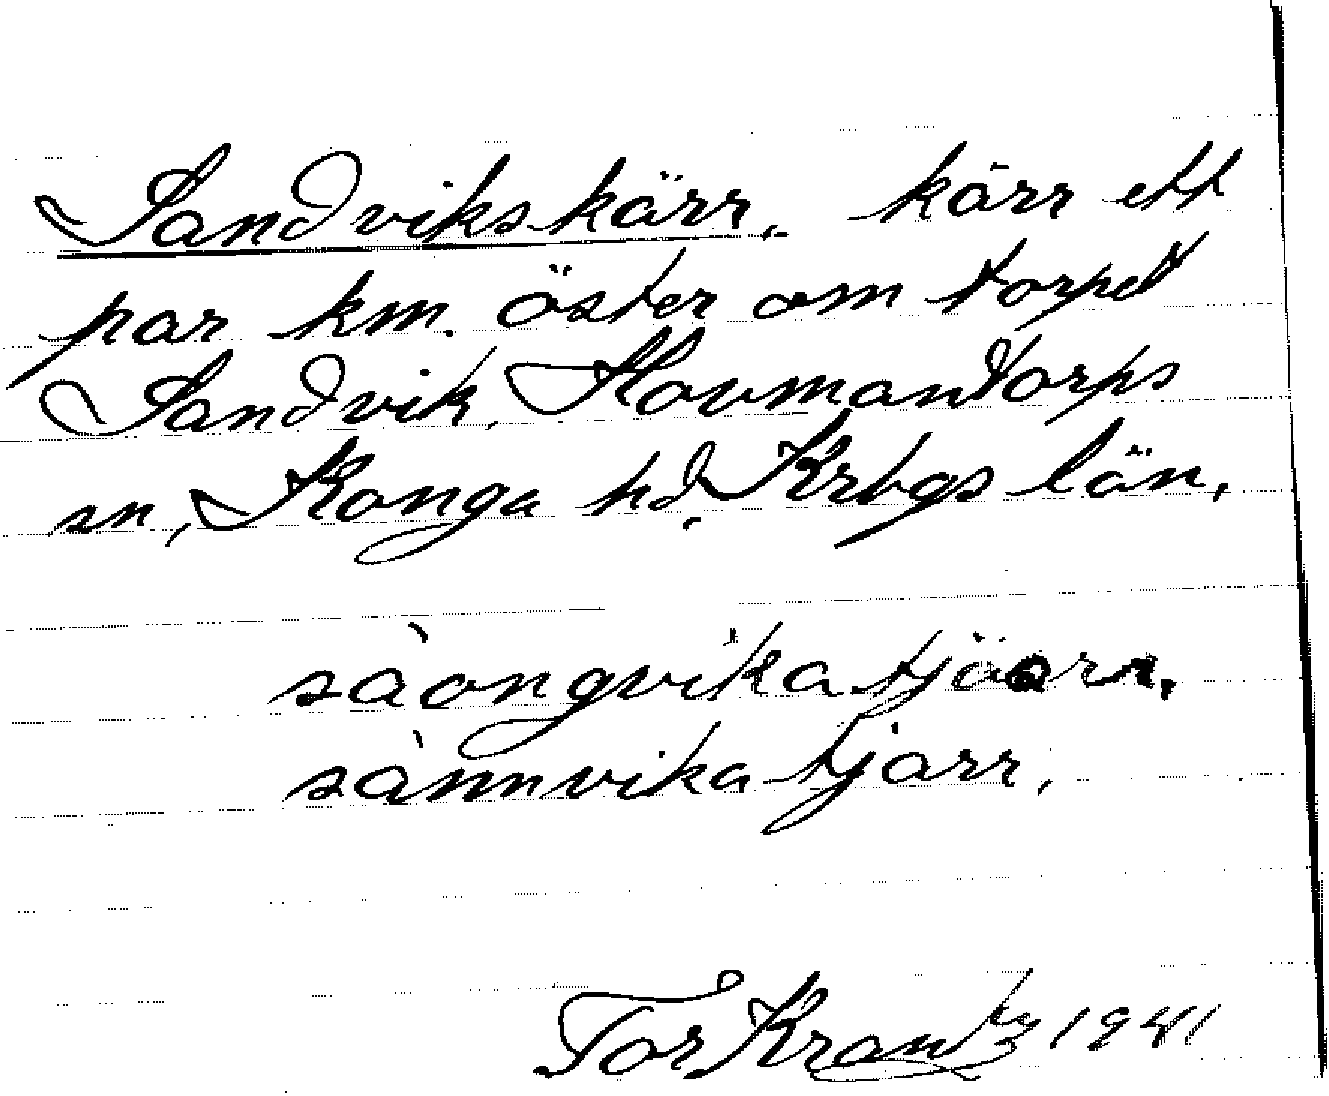 Sandvikskärr, kärr ett
par km. öster om torpet
Sandvik, Hovmantorps
sn, Konga hd. Krbgs län,
sàongvika tjäärr,
sànnvika tjärr,
Tor Krantz 1941